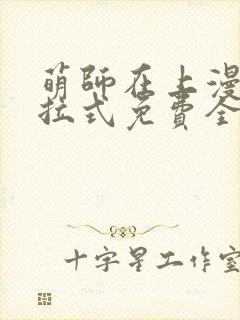 萌師在上漫
拉式免費全
十字星工作室